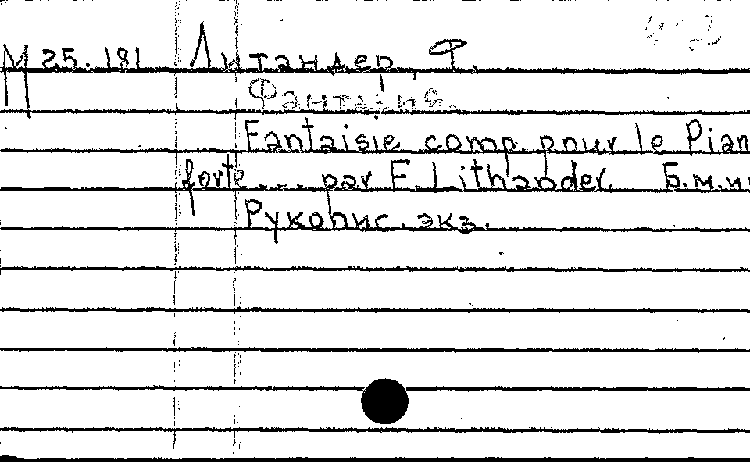 М 25.181 Литандер, Ф.
Фантазия.
Fantaisie comp. pour le Pian
forte... par F. Lithander. Б.м.и
Рукопис. экз.